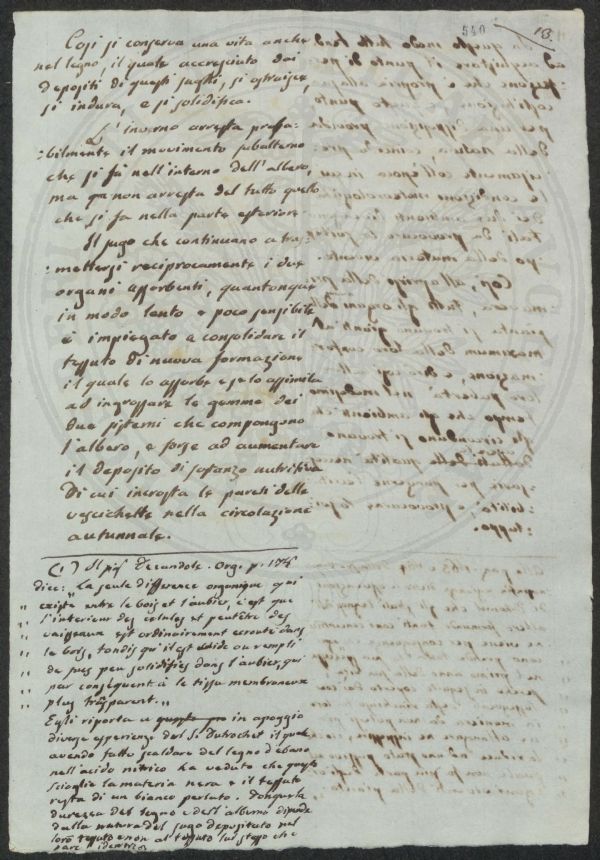 540
13.
Così si conserva una vita anche
nel legno, il quale accresciuto dai
depositi di questi sughi, si ostruisce,
si indura, e si solidifica.
L'inverno arresta proba=
=bilmente il movimento subalterno
che si fà nell'interno dell'albero,
ma non arresta del tutto quello
che si fa nella parte esteriore
Il sugo che continuano a tras=
=mettersi reciprocamente i due
organi assorbenti, quantunque
in modo lento e poco sensibile
è impiegato a consolidare il
tessuto di nuova formazione
il quale lo assorbe e se lo assimila
ad ingrossare le gemme dei
due sistemi che compongono
l'albero, e forse ad aumentare
il deposito di sostanza nutritiva
di cui incrosta le pareti delle
vescichette nella circolazione
autunnale.
(1) Il Decandole. Org. p. 178
dice: La seule difference organique qui
" existe entre le bois et l'aubier, c'est que
" l'interieur des celules et peutêtre des
" vaisseaux est ordinairement encrouté dans
" le bois, tandis qu'il est vuide ou rempli
" de sucs peu solidifiés dans l'aubier, qui
" par consequent à le tissu membraneux
" plus trasparent.„
Egli riporta in apoggio
diverse esperienze del Sr Dutrochet il quale
avendo fatto scaldare del legno d'ebano
nell'acido nitrico ha veduto che questo
scioglie la materia nera e il tessuto
resta di un bianco perlato. Dunque la
durezza del legno e dell'alberno dipende
dalla natura del sugo depositato nel
loro tessuto e non al tessuto lui stesso che
pare identico